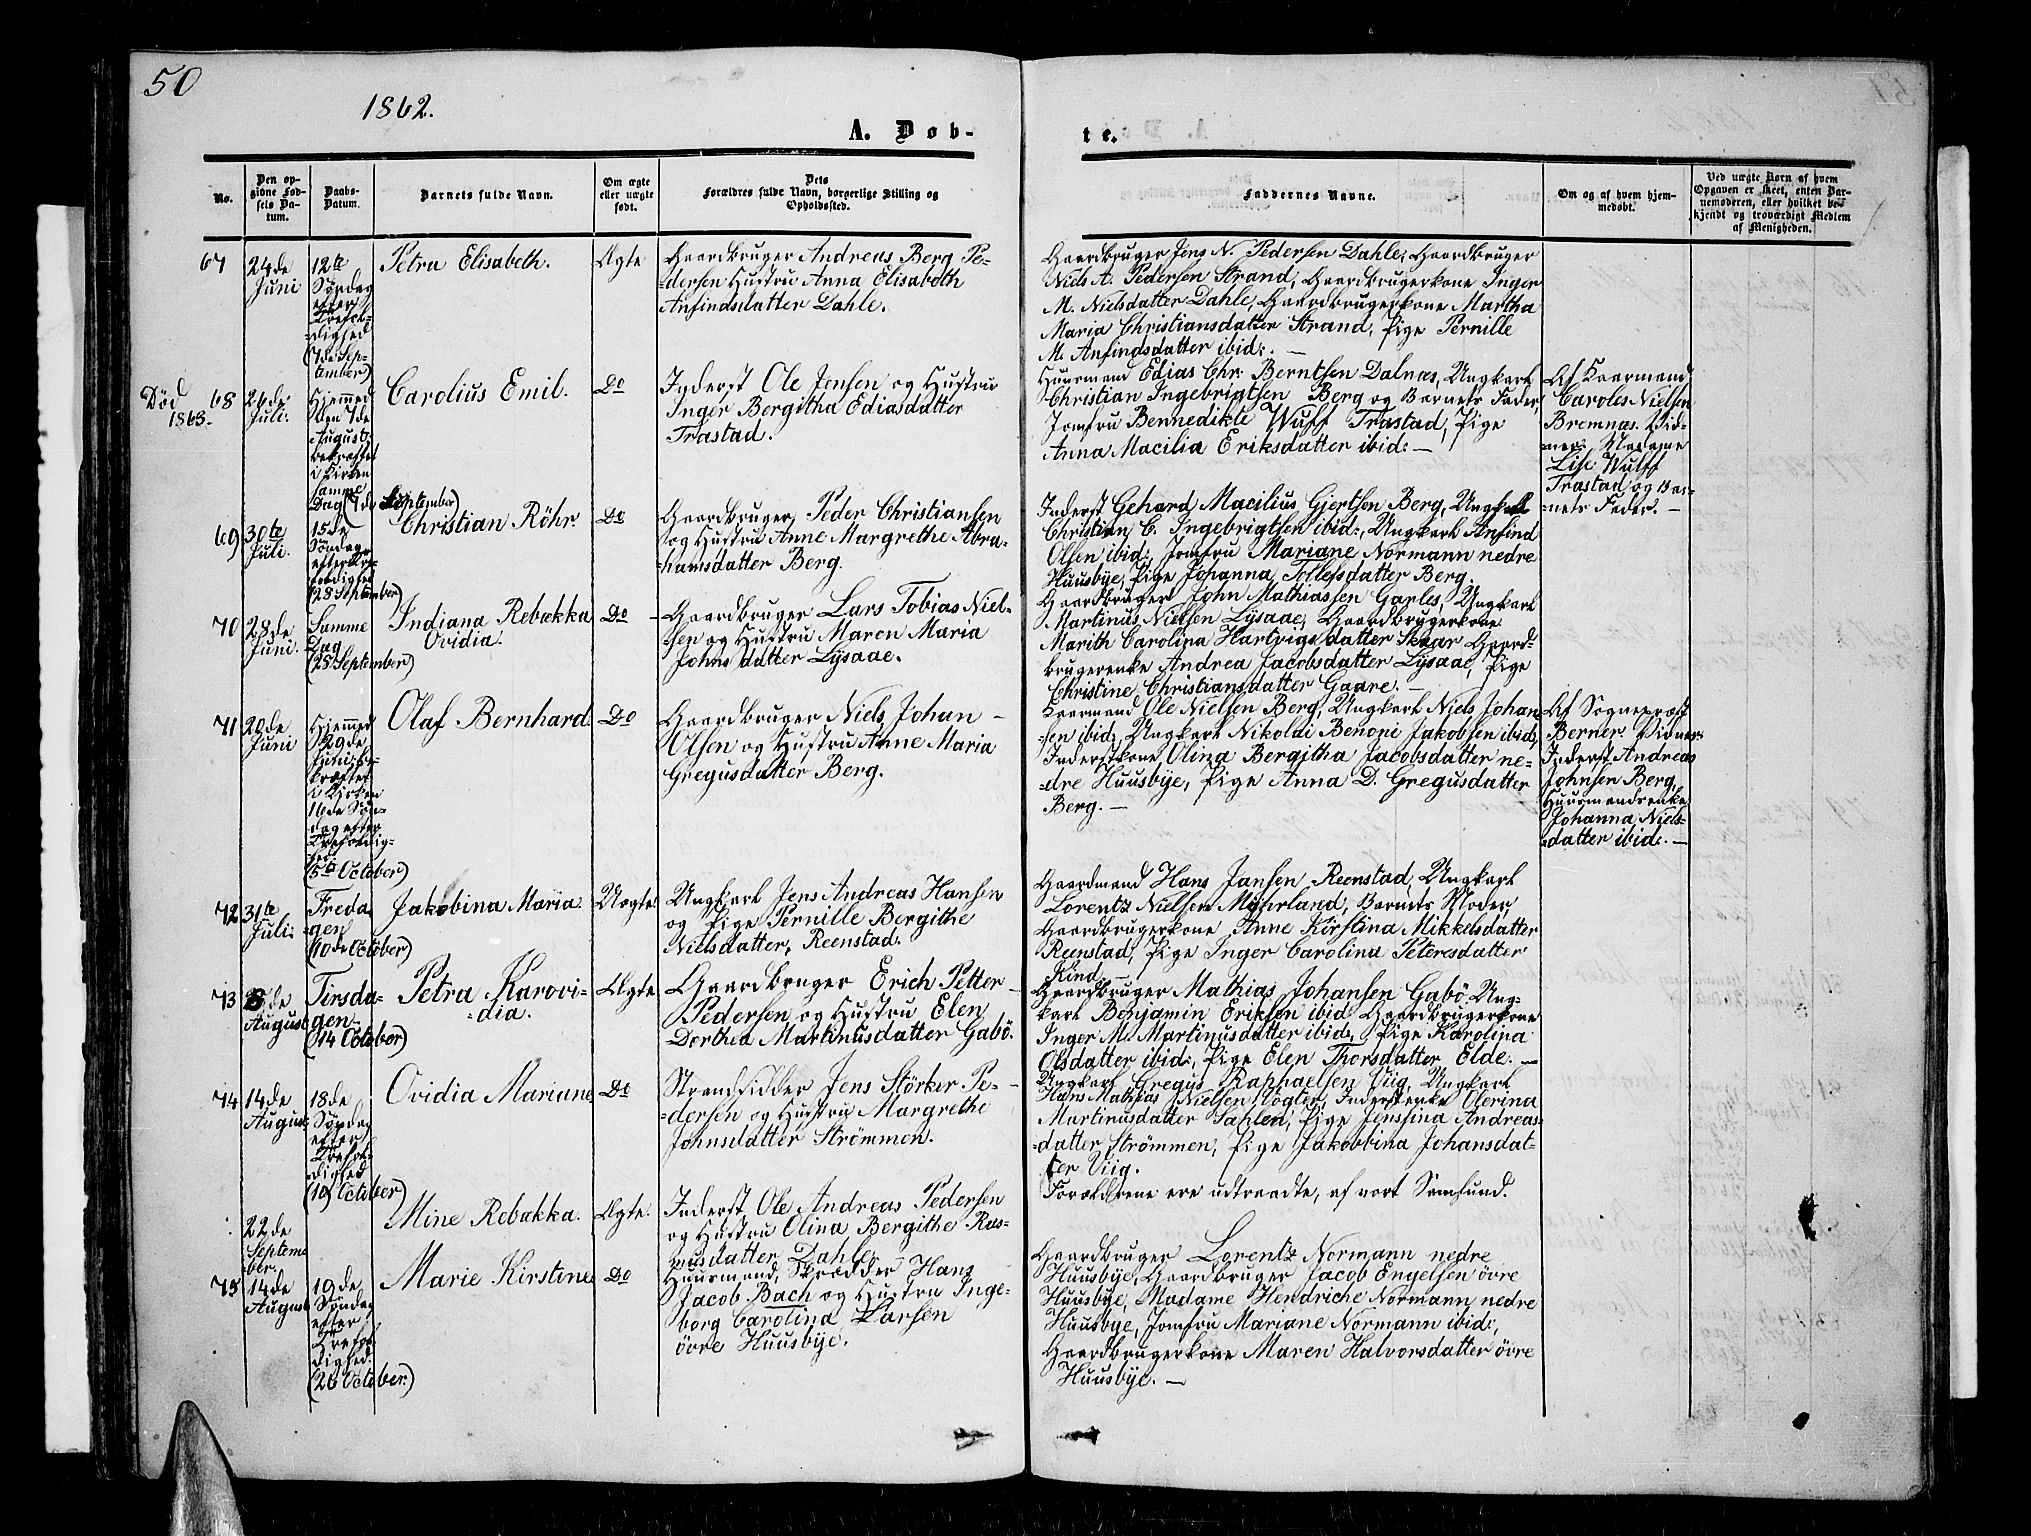 50
1862.
A. Døb-
te.
No.
Den op-
gidne Fød-
sels Da-
tum.
Daabs-
Datum.
Barnets fulde Navn.
Om ægte
eller uægte
født.
Dets
Forældres fulde Navn, borgerlige Stilling og
Opholdssted.
Faddernes Navne.
Om og af hvem hjem-
medøbt.
Ved uægte Børn af hvem
Opgaven er skeet, enten Bar-
nemoderen, eller hvilket be-
kjendt og troværdigt Medlem
af Menigheden.
67
24de
Juni
12te
Søndag
efter
Trefol-
dighed
(7de Sep-
tember)
Petra Elisabeth.
Ægte
Gaardbruger Andreas Berg Pe-
dersen Hustru Anna Elisabeth
Anfindsdatter Dahle.
Gaardbruger Jens N. Pedersen Dahle, Gaardbruger
Niels A. Pedersen Strand, Gaardbrugerkone Inger
M. Nielsdatter Dahle, Gaardbrugerkone Martha
Maria Christiansdatter Strand, Pige Pernille
M. Anfindsdatter ibid:. —
Død
1863.
68
26de
Juli.
Hjemmed
den 7de
August.
bekræftet
i Kirken
samme
Dag (7de September)
Carolius Emil.
Do
Inderst Ole Jensen og Hustru
Inger Bergitha Ediasdatter
Trastad.
Huusmand Edias Chr. Berntsen Dalnæs, Ungkarl
Christian Ingebrigtsen Berg og Barnets Fader,
Jomfru Bennedikte Wulff Trastad, Pige
Anna Macilia Eriksdatter ibid: —
Af Kaarmand
Caroles Nielsen
Bremnæs. Vid-
ner: Madame
Lise Wulff
Trastad og Bar-
nets Fader. —
69
30te
Juli.
15de
Søndag
efter Tre-
foldighed
(28 September)
Christian Röhr.
Do
Gaardbruger Peder Christiansen
og Hustru Anne Margrethe Abra-
hamsdatter Berg.
Inderst Gehard Macilius Gjertsen Berg, Ungkarl
Christian C. Ingebrigtsen ibid:, Ungkarl Anfind
Olsen ibid:, Jomfru Mariane Normann nedre
Huusbye, Pige Johanna Tollefsdatter Berg.
70
28de
Juni.
Samme
Dag
(28 September)
Indiana Rebækka
Ovidia.
Do
Gaardbruger Lars Tobias Niel-
sen og Hustru Maren Maria
Johnsdatter Lysaae.
Gaardbruger John Mathiassen Gare, Ungkarl
Martinus Nielsen Lysaae, Gaardbrugerkone
Marith Carolina Hartvigsdatter Skaar Gaard-
brugerenke Andrea Jacobsdatter Lysaae, Pige
Christine Christiansdatter Gaare. —
71
20de
Juni
Hjemmed
29de
Juni be-
kræftet
i Kirken
16de Søn-
dag efter
Trefoldig-
hed
(5te October)
Olaf Bernhard.
Do
Gaardbruger Niels Johan —
Olsen og Hustru Anne Maria
Gregusdatter Berg.
Kaarmand Ole Nielsen Berg, Ungkarl Niels Johan-
sen ibid:, Ungkarl Nikolai Benoni Jakobsen ibid:,
Inderstkone Olina Bergitha Jacobsdatter ne-
dre Huusbye, Pige Anna D. Gregusdatter
Berg. —
Af Sognepræst
Berner. Vidner:
Inderst Andreas
Johnsen Berg,
Huusmandsenke
Johanna Niels-
datter ibid:. —
72
31te
Juli:
Freda-
gen
(10de October)
Jakobina Maria.
Uægte.
Ungkarl Jens Andreas Hansen
og Pige Pernille Bergithe
Nielsdatter, Reenstad.
Gaardmand Hans Jansen Reenstad, Ungkarl
Lorentz Nielsen Myhrland, Barnets Moder,
Gaardbrugerkone Anne Kirstina Mikkelsdatter
Reenstad, Pige Inger Carolina Petersdatter
Kind —
73
8de
August
Tirsda-
gen
(14 October)
Petra Karovi-
dia.
Ægte
Gaardbruger Erich Petter —
Pedersen og Hustru Elen
Dorthea Martinusdatter Gabö.
Gaardbruger Mathias Johansen Gabö, Ung-
karl Benjamin Eriksen ibid Gaardbrugerkone
Inger M. Martinusdatter ibid:, Pige Karolina
Olsdatter ibid:, Pige Elen Thorsdatter Elde: —
74
14de
August
18de
Søndag
efter
Trefol-
dighed
(19 October)
Ovidia Mariane
Do
Strandsidder Jens Störker Pe- —
dersen og Hustru Margrethe
Johnsdatter Strömmen.
Ungkarl Gregus Raphaelsen Viig, Ungkarl
Hans Mathias Nielsen Vogter, Inderstenke Olerina
Martinusdatter Sahlen, Pige Jenssina Andreas-
datter Strömmen, Pige Jakobbina Johansdat-
ter Viig.
22de
Septem-
ber.
Mine Rebækka.
Ægte.
Inderst Ole Andreas Pedersen
og Hustru Olina Bergithe Ras-
musdatter Dahle.
Forældrene ere udtraadte, af vort Samfund.
75
14de
August
19de
Søndag
efter
Trefol-
dighed.
(26 October.)
Marie Kirstine
Do
Huusmand, Skrædder Hans
Jacob Bach og Hustru Inge-
borg Carolina Larsen
övre Huusbye.
Gaardbruger Lorentz Normann nedre
Huusbye, Gaardbruger Jacob Engelsen övre
Huusbye, Madame Hendriche Normann nedre
Huusbye, Jomfru Mariane Normann ibid:,
Gaardbrugerkone Maren Halvorsdatter övre
Huusbye. —